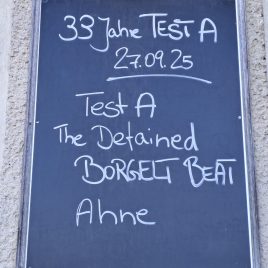 33 Jahre TEST A
27.09.25
Test A
The Detained
BORGELT BEAT
Ahne